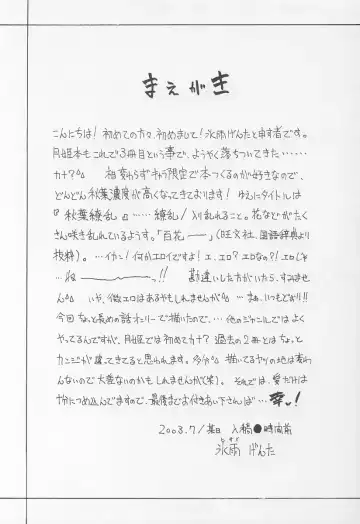 まえがき
こんにちは！初めての方々、初めまして！氷雨げんたと申す者です。
月姫本もこれで3冊目という事で、ようやく落ちついてきた……
カナ？^^ 相変わらずネコ限定で本つくるのが好きなので、
どんどん秋葉濃度が高くなってきております！ゆえにタイトルは
『秋葉繚乱』……繚乱／入り乱れること。花などがたく
さん咲き乱れているようす。「百花――」（旺文社、国語辞典より
抜粋）。…イカン！何かエロイですよ！エ、エロ？エロなの？！エロじゃ
！！ 勘違いした方がいたら、すみませ
ん^^ いや、微エロはあるやもしれませんが^^ …まあ、いつもどおり！！
今回ちょっと長めの話オンリーで描いたので…他のジャンルではよく
やってるんですが、月姫では初めてカナ？過去の2冊とはちょっと
カンジが違ってきてると思われます。多分^^ 描いてるヤツの地は変わ
んないので大差ないのかもしれませんが（笑）。それでは、愛だけは
十分につめ込んでますので、最後までお付きあい下されば…幸っ！
2003.7／某日 入稿●時間前
氷雨げんた